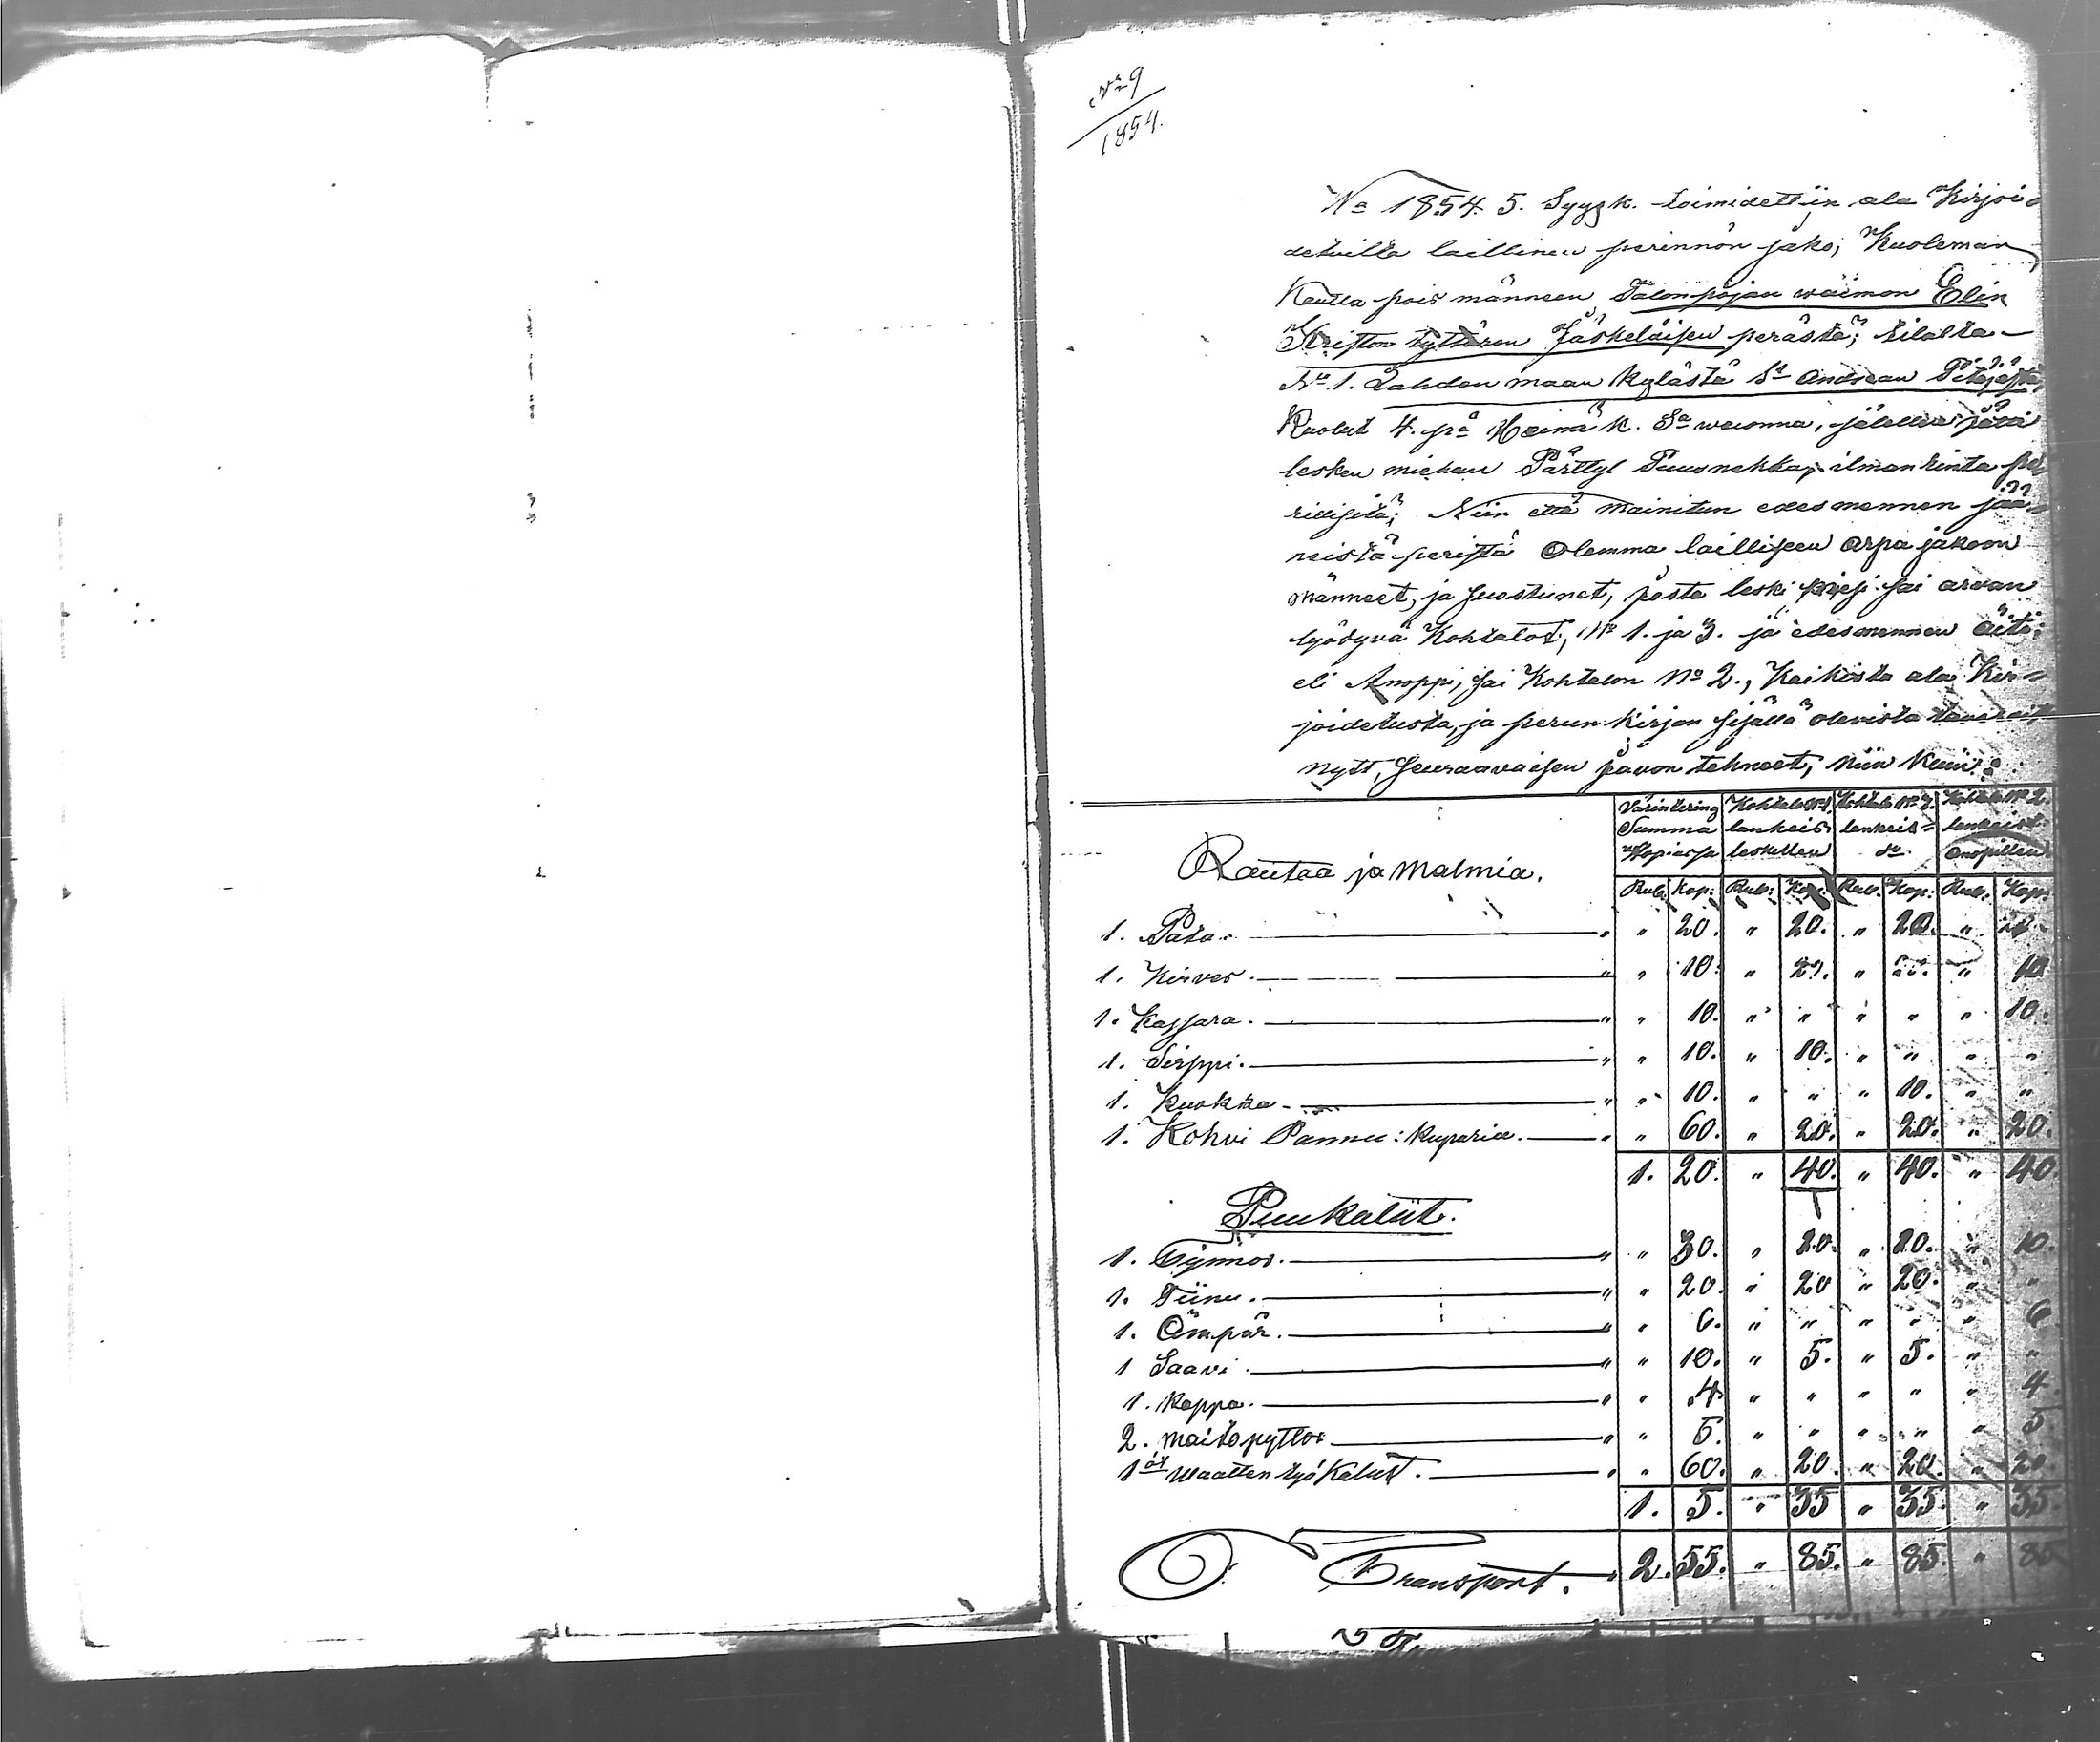 No 9
1854.
Na 1854. 5. Syysk. toimidettiin ala Kirjoi=
detuilta laillinen perinnön jako, Kuoleman
Kautta pois männeen Talonpojan waimon Elin
Kriston tyttären Jäskeläisen perästä; tilalta
No 1. Lahdenmaan Kylästä St Andrean Pitäjästä
Kuolut 4. pä Heinä k. Sa wuonna, jälellen jätti
lesken miehen Pärttyl Tuusnekka, ilman rinta pe=
rillisitä; Niin että mainitun edesmennen jää=
neistä peristä olemma lailliseen arpa jakoon
männeet, ja suostunet, josta leski miesi sai arvan
lyödyvä Kohtalot, No 1. ja 3. ja edesmennen äiti
eli Anoppi, sai Kohtalon No 2., Kaikista ala Kir=
joidetusta, ja perun Kirjan sisällä olevista tavaroista
nytt, seuraavaisen jaion tehneet, niin Kuin:
Värintering Kohtalo No 1. Kohtalo No 3. Kohtalo No 2.
Summa lankeis lankeis= lankeist
Hopiassa leskellen do Anopillen
Rautaa ja Malmia.
Rub. Kop: Rub: Kop: Rub. Kop: Rub. Kop:
1. Pata. " " 20. " 20. " 20. " 20.
1. Kirves. " " 10. " 20. " 20. " 10
1. Kassara. " " 10. " " " " " 10.
1. Sirppi. " " 10. " 10. " " " "
1. Kuokka " " 10. " " " 10. " "
1. Kohvi Pannu: Kuparia. " " 60. " 20. " 20. " 20.
1. 20. " 40. " 40. " 40.
Puukalut.
1. Tynnör. " " 30. " 20 " 20. " 10.
1. Tiinu. " " 20. " 20 " 20. " "
1. Ämpär. " " 6. " " " " " 6
1 Saavi. " " 10. " 5. " 5. " "
1. Kappa. " " 4 " " " " " 4.
2. maitopyttöe " " 5. " " " " " 5.
1 öt Waatten työ Kalut. " " 60. " 20. " 20. " 20.
1. 5. " 35 " 35. " 35.
Transport. " 2. 55. " 85. " 85. " 85